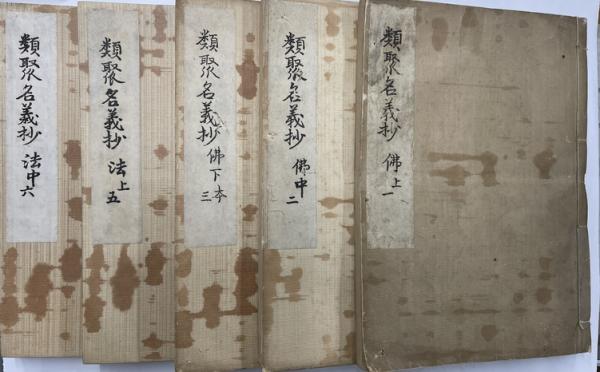 類聚名義抄 佛上 一
類聚名義抄 佛中 二
類聚名義抄 佛下本 三
類聚名義抄 法上 五
類聚名義抄 法中 六